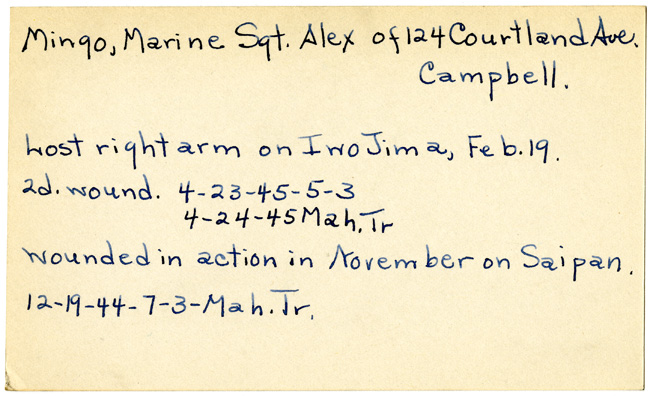 Mingo, Marine Sgt. Alex of 124 Courtland Ave.
Campbell.
Lost right arm on Iwo Jima, Feb. 19.
2d. wound. 4-23-45-5-3
4-24-45 Mah. Tr
Wounded in action in November on Saipan.
12-19-44-7-3-Mah. Tr.